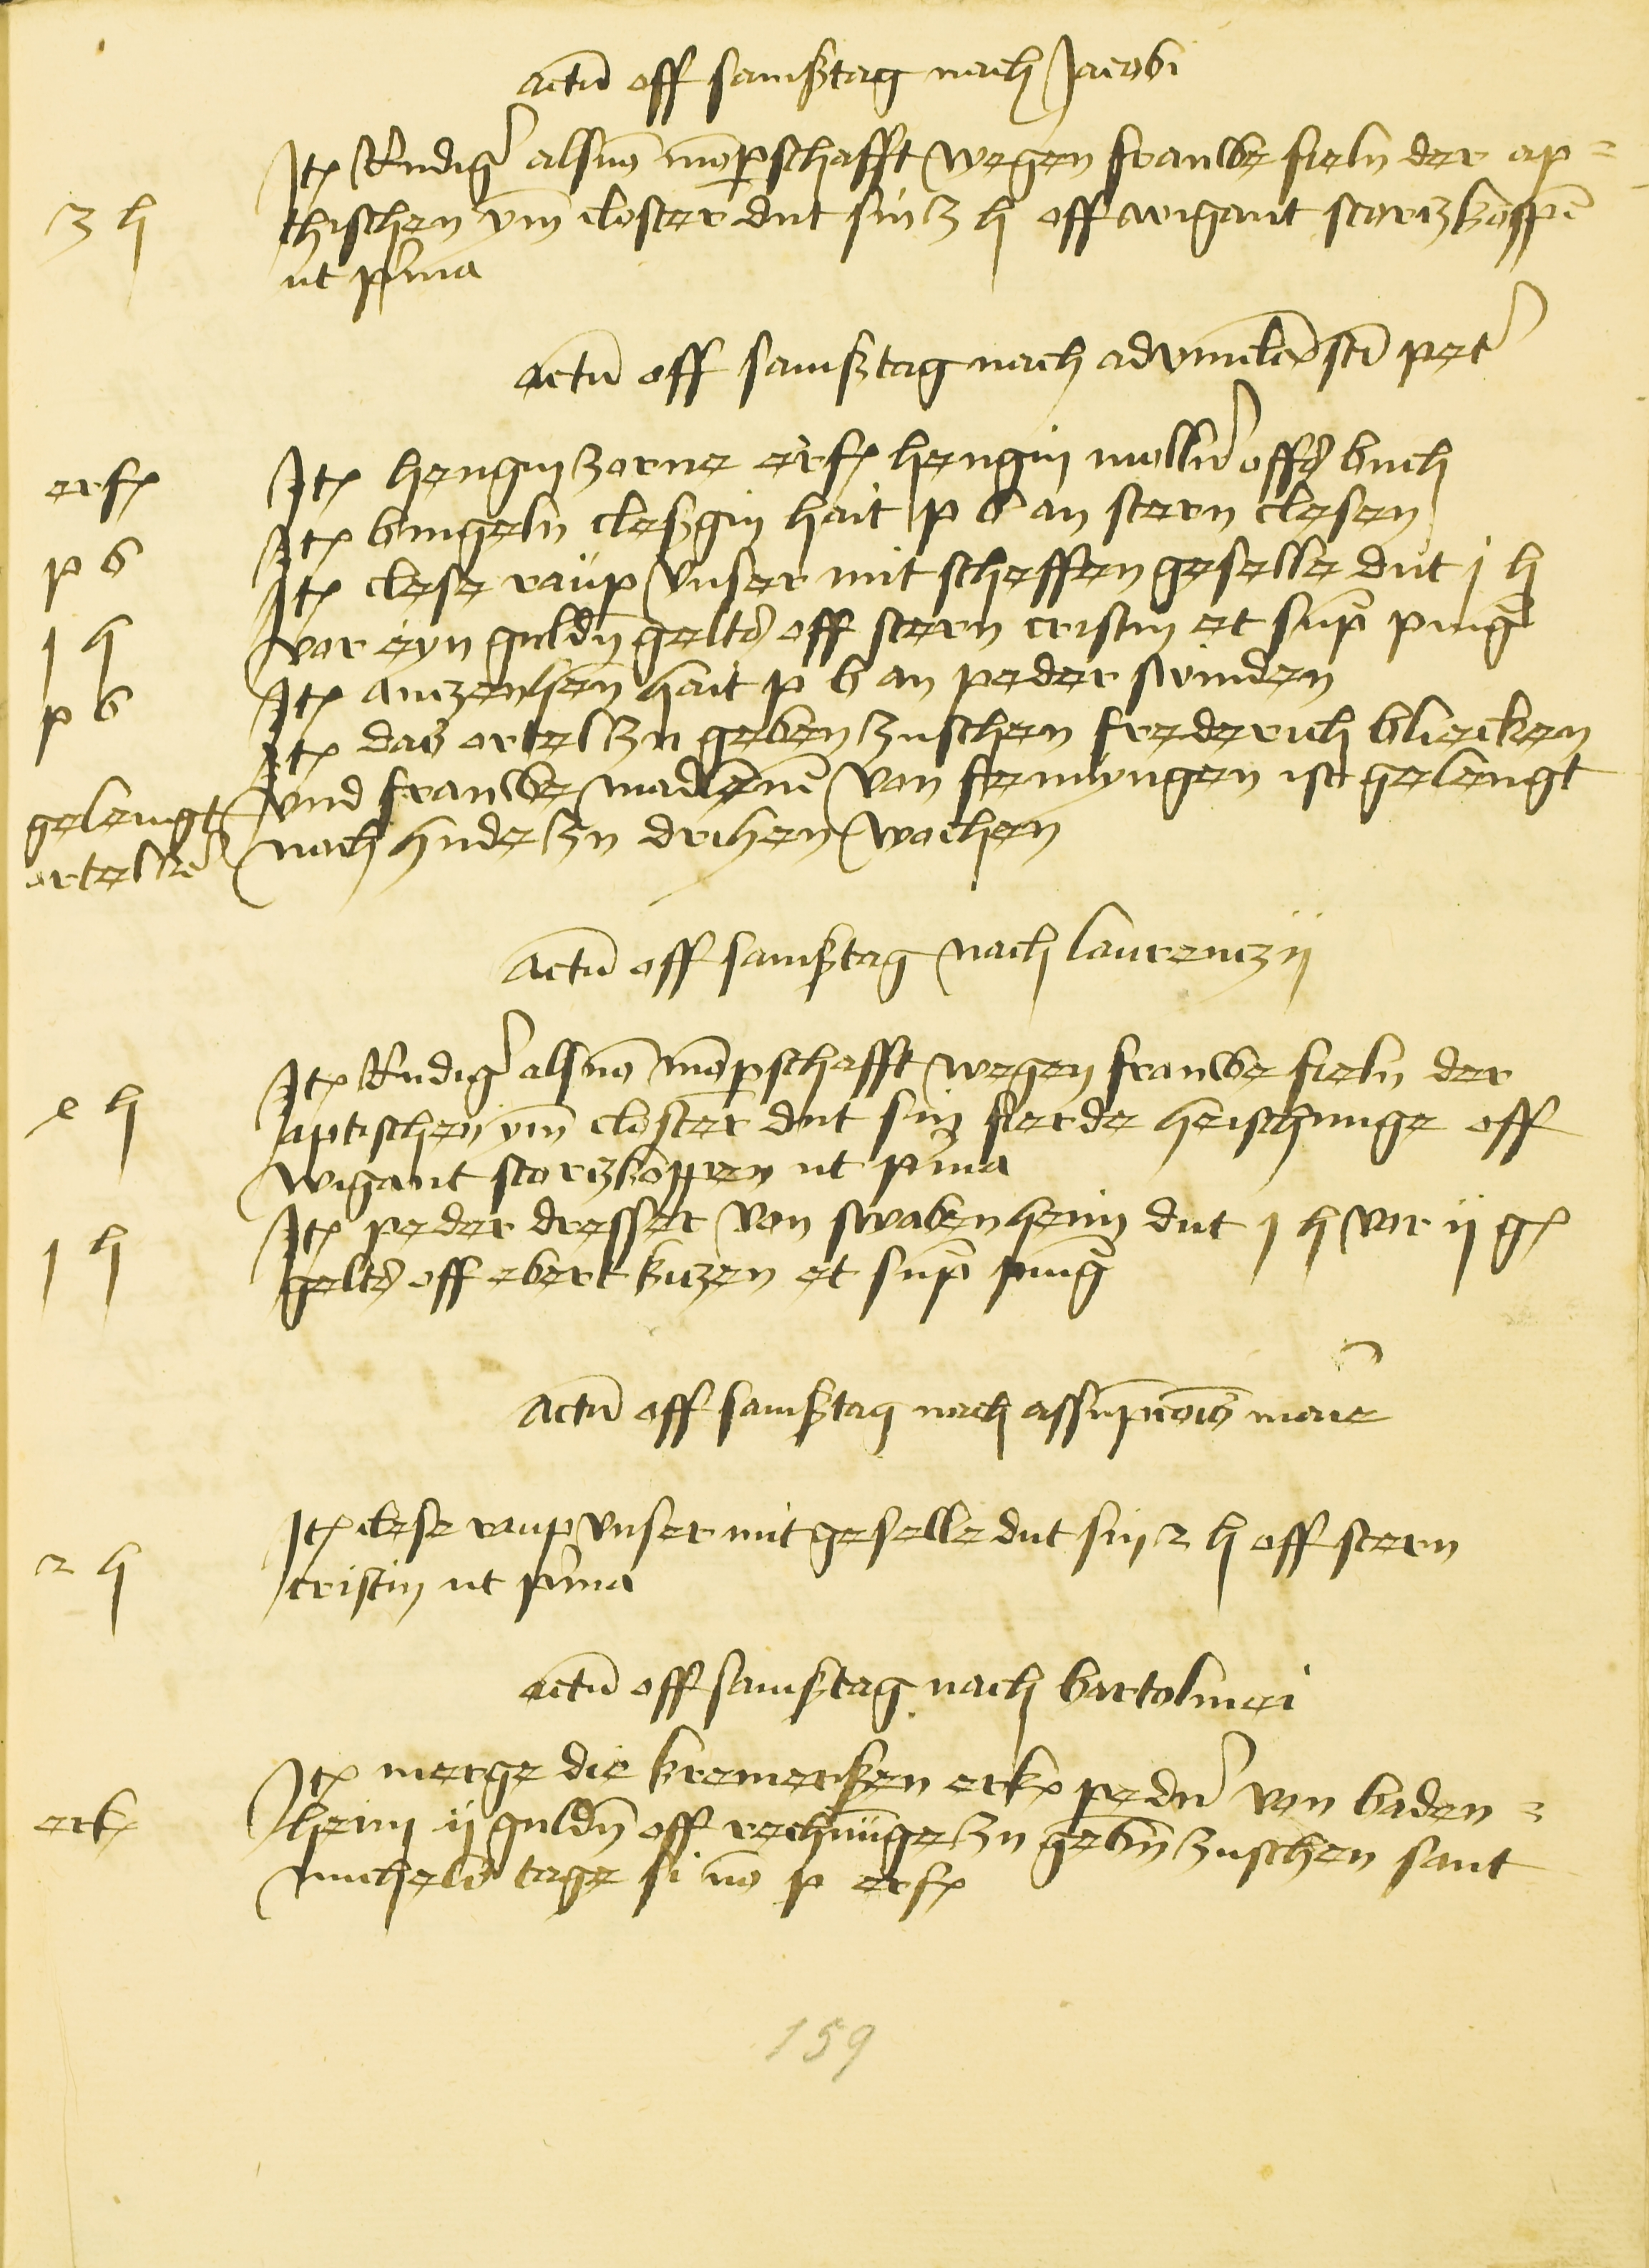 actu͞ off samßtag nach Jacobi
Jt͛ Rudig͛ als vo͞ mo͞p̲schafft wegen frauwe fieln̄ der ap=
3 h thisschen ym̄ closter dut sin 3 h off wigant storczkoppē
ut p̲ma
actu͞ off samßtag nach advincl̄a sc̄i pet͛
erf͛ Jt͛ hengin zorne erf͛ hengin molln͛ offs buch
p b Jt͛ bingeln̄ cleßgin hait p b an stern clesen
Jt͛ clese raup unser mit scheffen geselle dut j h
j h vor eyn guldn̄ gelts off stern cristin et sup̄ pīnḡ
p b Jt͛ anczenhen hait p b an peder swinden
Jt͛ das ortel zu geben zuschen frederich blicken
gelengt und frauwe madlenē von femyngen ist gelengt
ortelle͛ noch hude zu drihen wochen
actu͞ off samßtag nach laurenczij
Jt͛ Rudig͛ als vo͞ mo͞p̲schafft wegen frauwe fieln̄ der
e h aptisschen ym̄ closter dut sin fierde heischunge off
wigant storczkoppen ut p̲ma
j h Jt͛ peder dresser von swabenheim dut j h vor ij g͛
gelts off ebert kiczen et sup̄ pīnḡ
actu͞ off samßtag nach assūpcōis marie
Jt͛ clese raup unser mit geselle dut sin 2 h off stern
2 h cristin ut p̲ma
actu͞ off samßtag nach bartolmei
Jt͛ merge die kremerßen erk͛ pedn͛ von baden=
erk͛ heim ij guldn̄ off rechnūge zu gebn̄ zuschen sant
michels tage si no͞ p erf͛
159